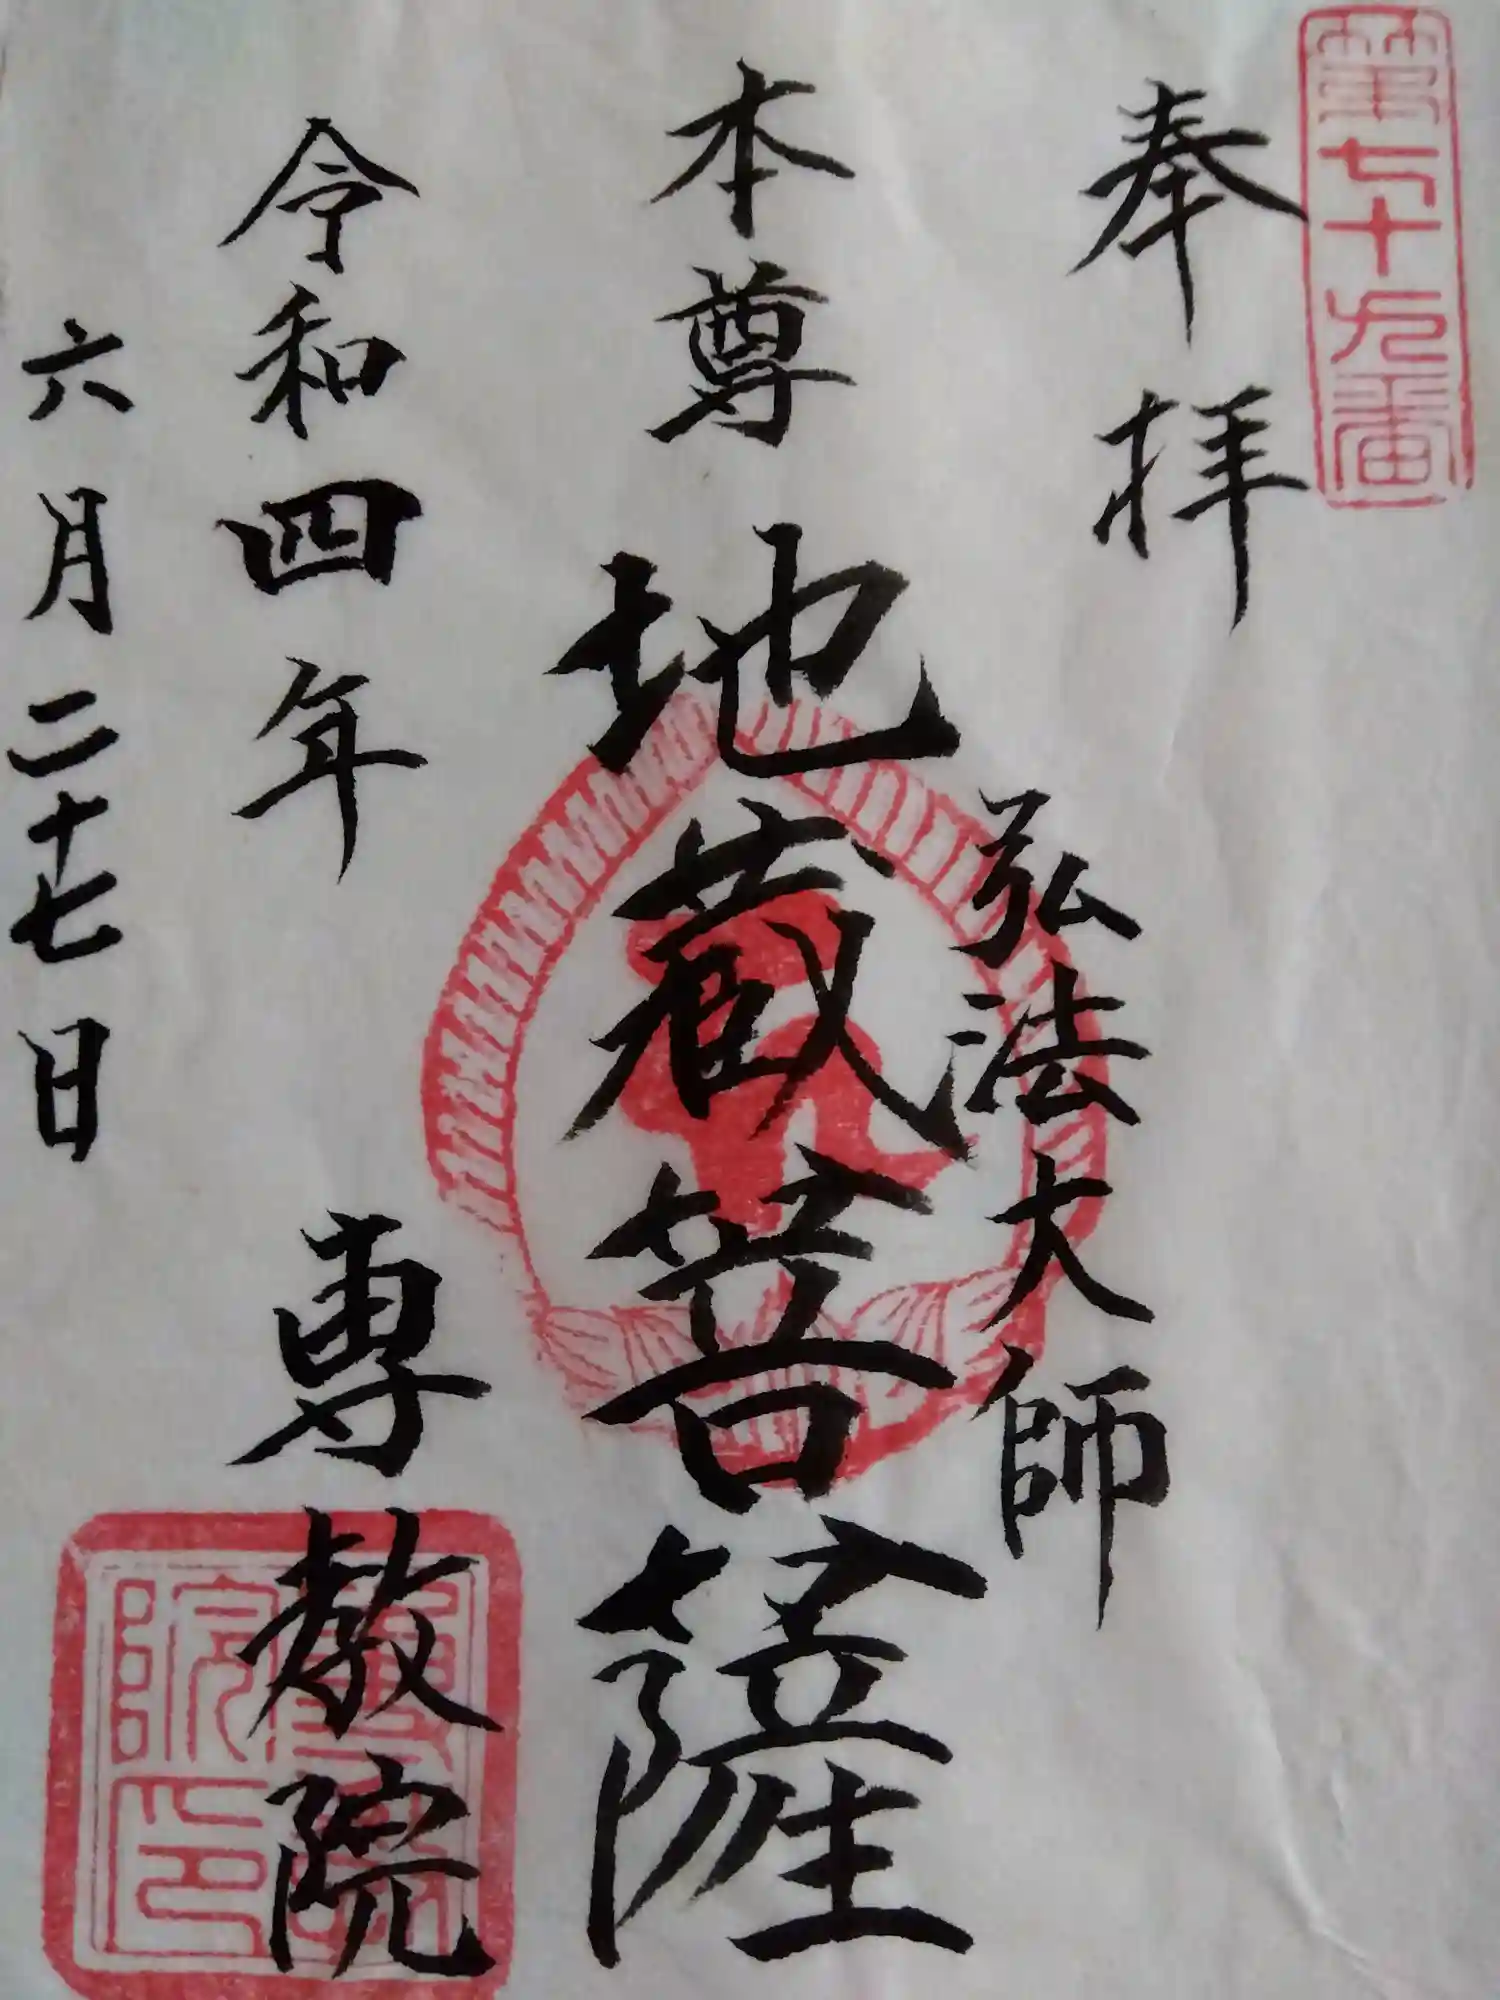 第七十九番
奉拝
弘法大師
本尊 地蔵菩薩
令和四年
六月二十七日
専教院
専教院印